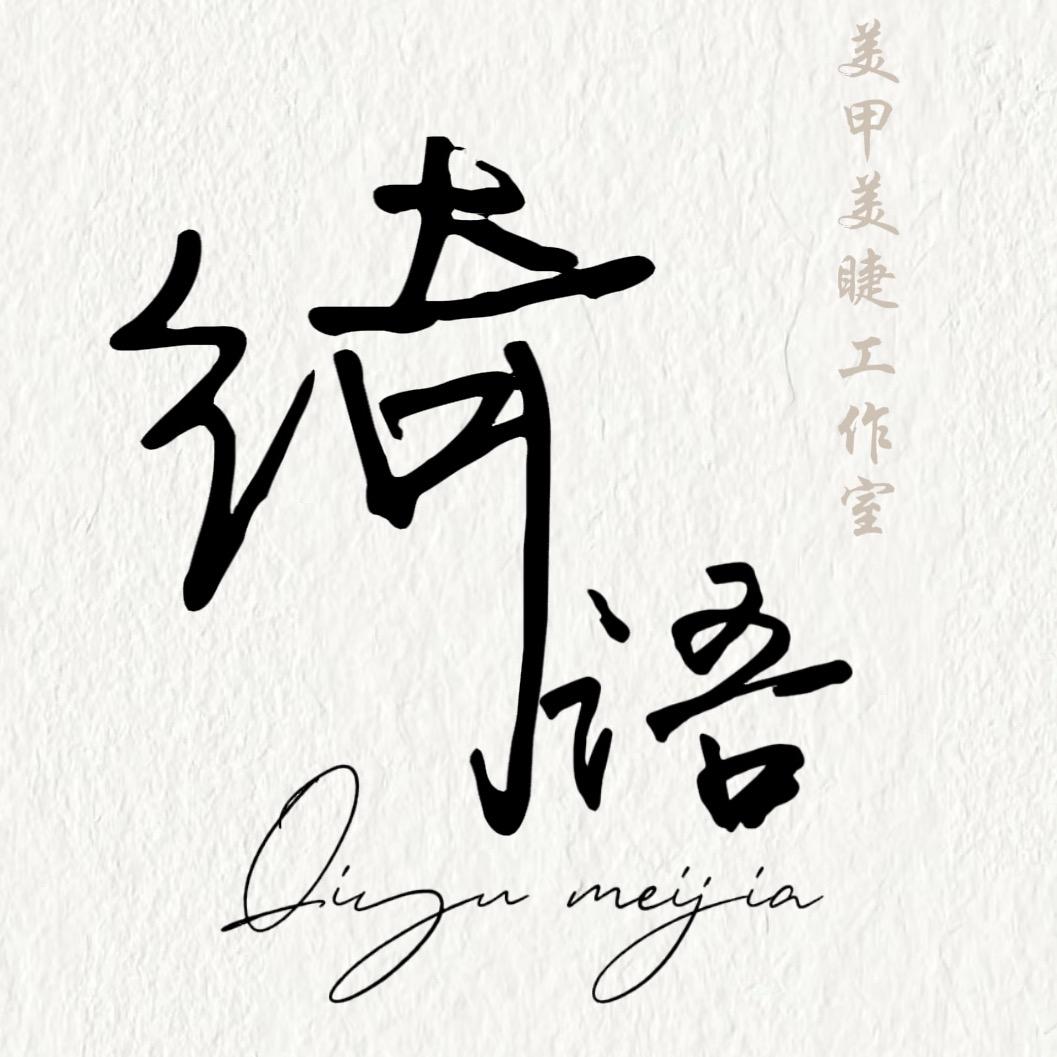 绮语
美甲美睫工作室
Qiyu meijia